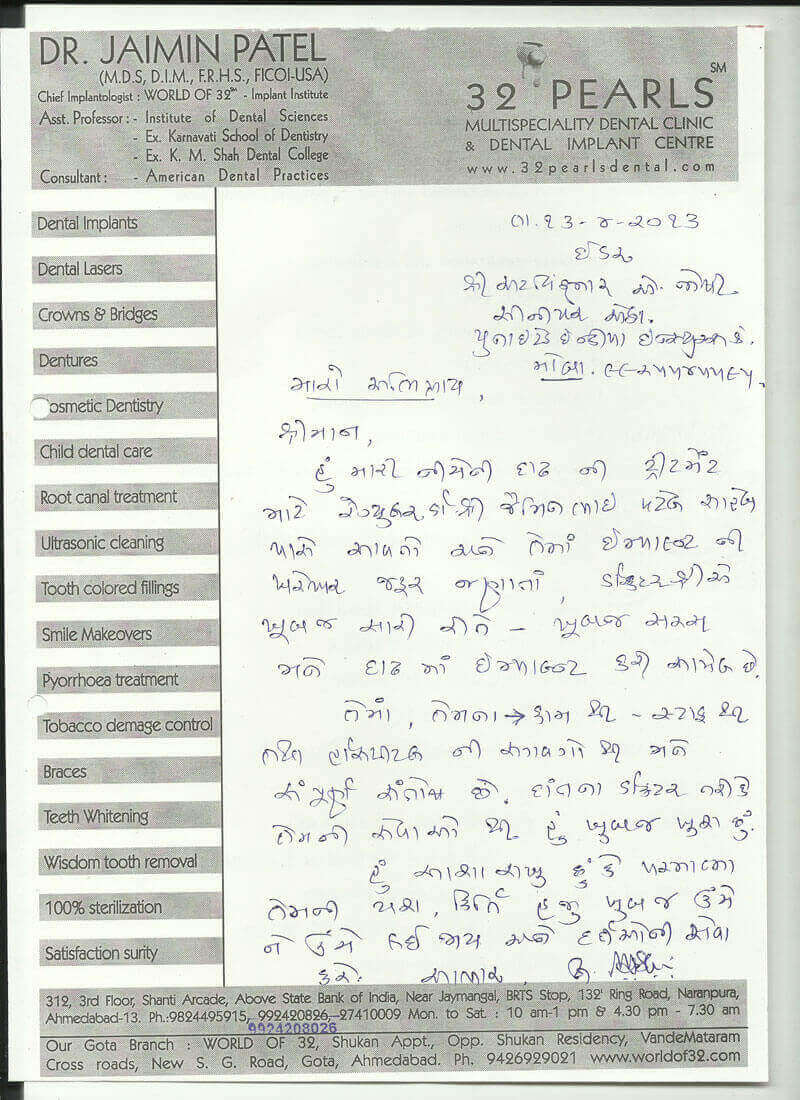 DR. JAIMIN PATEL
(M.D.S, D.I.M., F.R.H.S., FICOI-USA)
Chief Implantologist : WORLD OF 32™ - Implant Institute
Asst. Professor : - Institute of Dental Sciences
- Ex. Karnavati School of Dentistry
- Ex. K. M. Shah Dental College
Consultant : - American Dental Practices
32 PEARLS SM
MULTISPECIALITY DENTAL CLINIC
& DENTAL IMPLANT CENTRE
www.32pearlsdental.com
Dental Implants
Dental Lasers
Crowns & Bridges
Dentures
Cosmetic Dentistry
Child dental care
Root canal treatment
Ultrasonic cleaning
Tooth colored fillings
Smile Makeovers
Pyorrhoea treatment
Tobacco demage control
Braces
Teeth Whitening
Wisdom tooth removal
100% sterilization
Satisfaction surity
તા. ૧૩-૪-૨૦૧૩
ઈડર
શ્રી જોષી
મારો અભિપ્રાય,
શ્રીમાન,
હું મારી નીચેની દાઢ ની ટ્રીટમેંટ
માટે ડૉ.શ્રી જૈમિનભાઇ પટેલ સાહેબ
પાસે આવતો અને તેમાં ઈમ્પ્લાન્ટ ની
ખરેખર જરૂર જણાતાં, ડૉક્ટરશ્રીએ
ખુબજ સારી રીતે – ખુબજ સરસ
મને દાઢ માં ઈમ્પ્લાન્ટ કરી આપેલ છે.
તેમાં, તેમના → કામ થી – સ્ટાફ થી
તથા હોસ્પિટલ ની સગવડો થી મને
સંપૂર્ણ સંતોષ છે. દાંતના ડૉક્ટર તરીકે
તેમની સેવાઓ થી હું ખુબજ ખુશ છું.
હું આશા રાખુ છું કે પરમાત્મા
તેમની યશ, કિર્તિ હજુ ખુબ જ ઉંચે
ને ઉંચે લઈ જાય અને દર્દીઓની સેવા
કરે. આભાર,
312, 3rd Floor, Shanti Arcade, Above State Bank of India, Near Jaymangal, BRTS Stop, 132' Ring Road, Naranpura,
Ahmedabad-13. Ph.:9824495915, 992420826, 27410009 Mon. to Sat : 10 am-1 pm & 4.30 pm - 7.30 am
9924208026
Our Gota Branch : WORLD OF 32, Shukan Appt., Opp. Shukan Residency, VandeMataram
Cross roads, New S. G. Road, Gota, Ahmedabad. Ph. 9426929021 www.worldof32.com